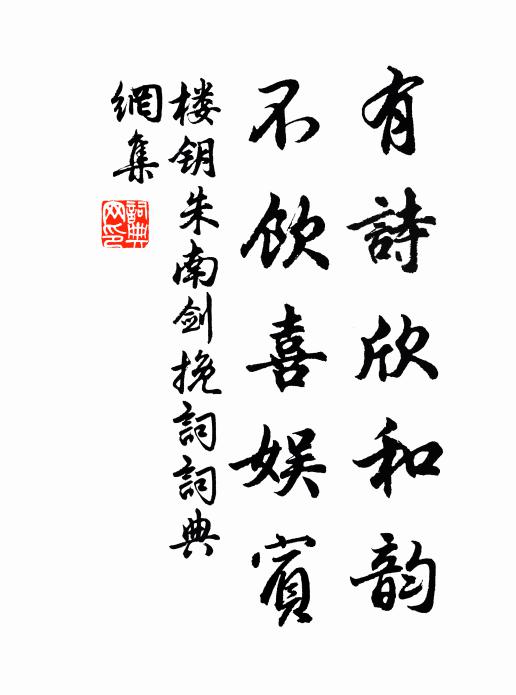 有詩欣和韵
不飲喜娱賓
楼钥朱南劍挽詞詞典
網集
詞典
网印